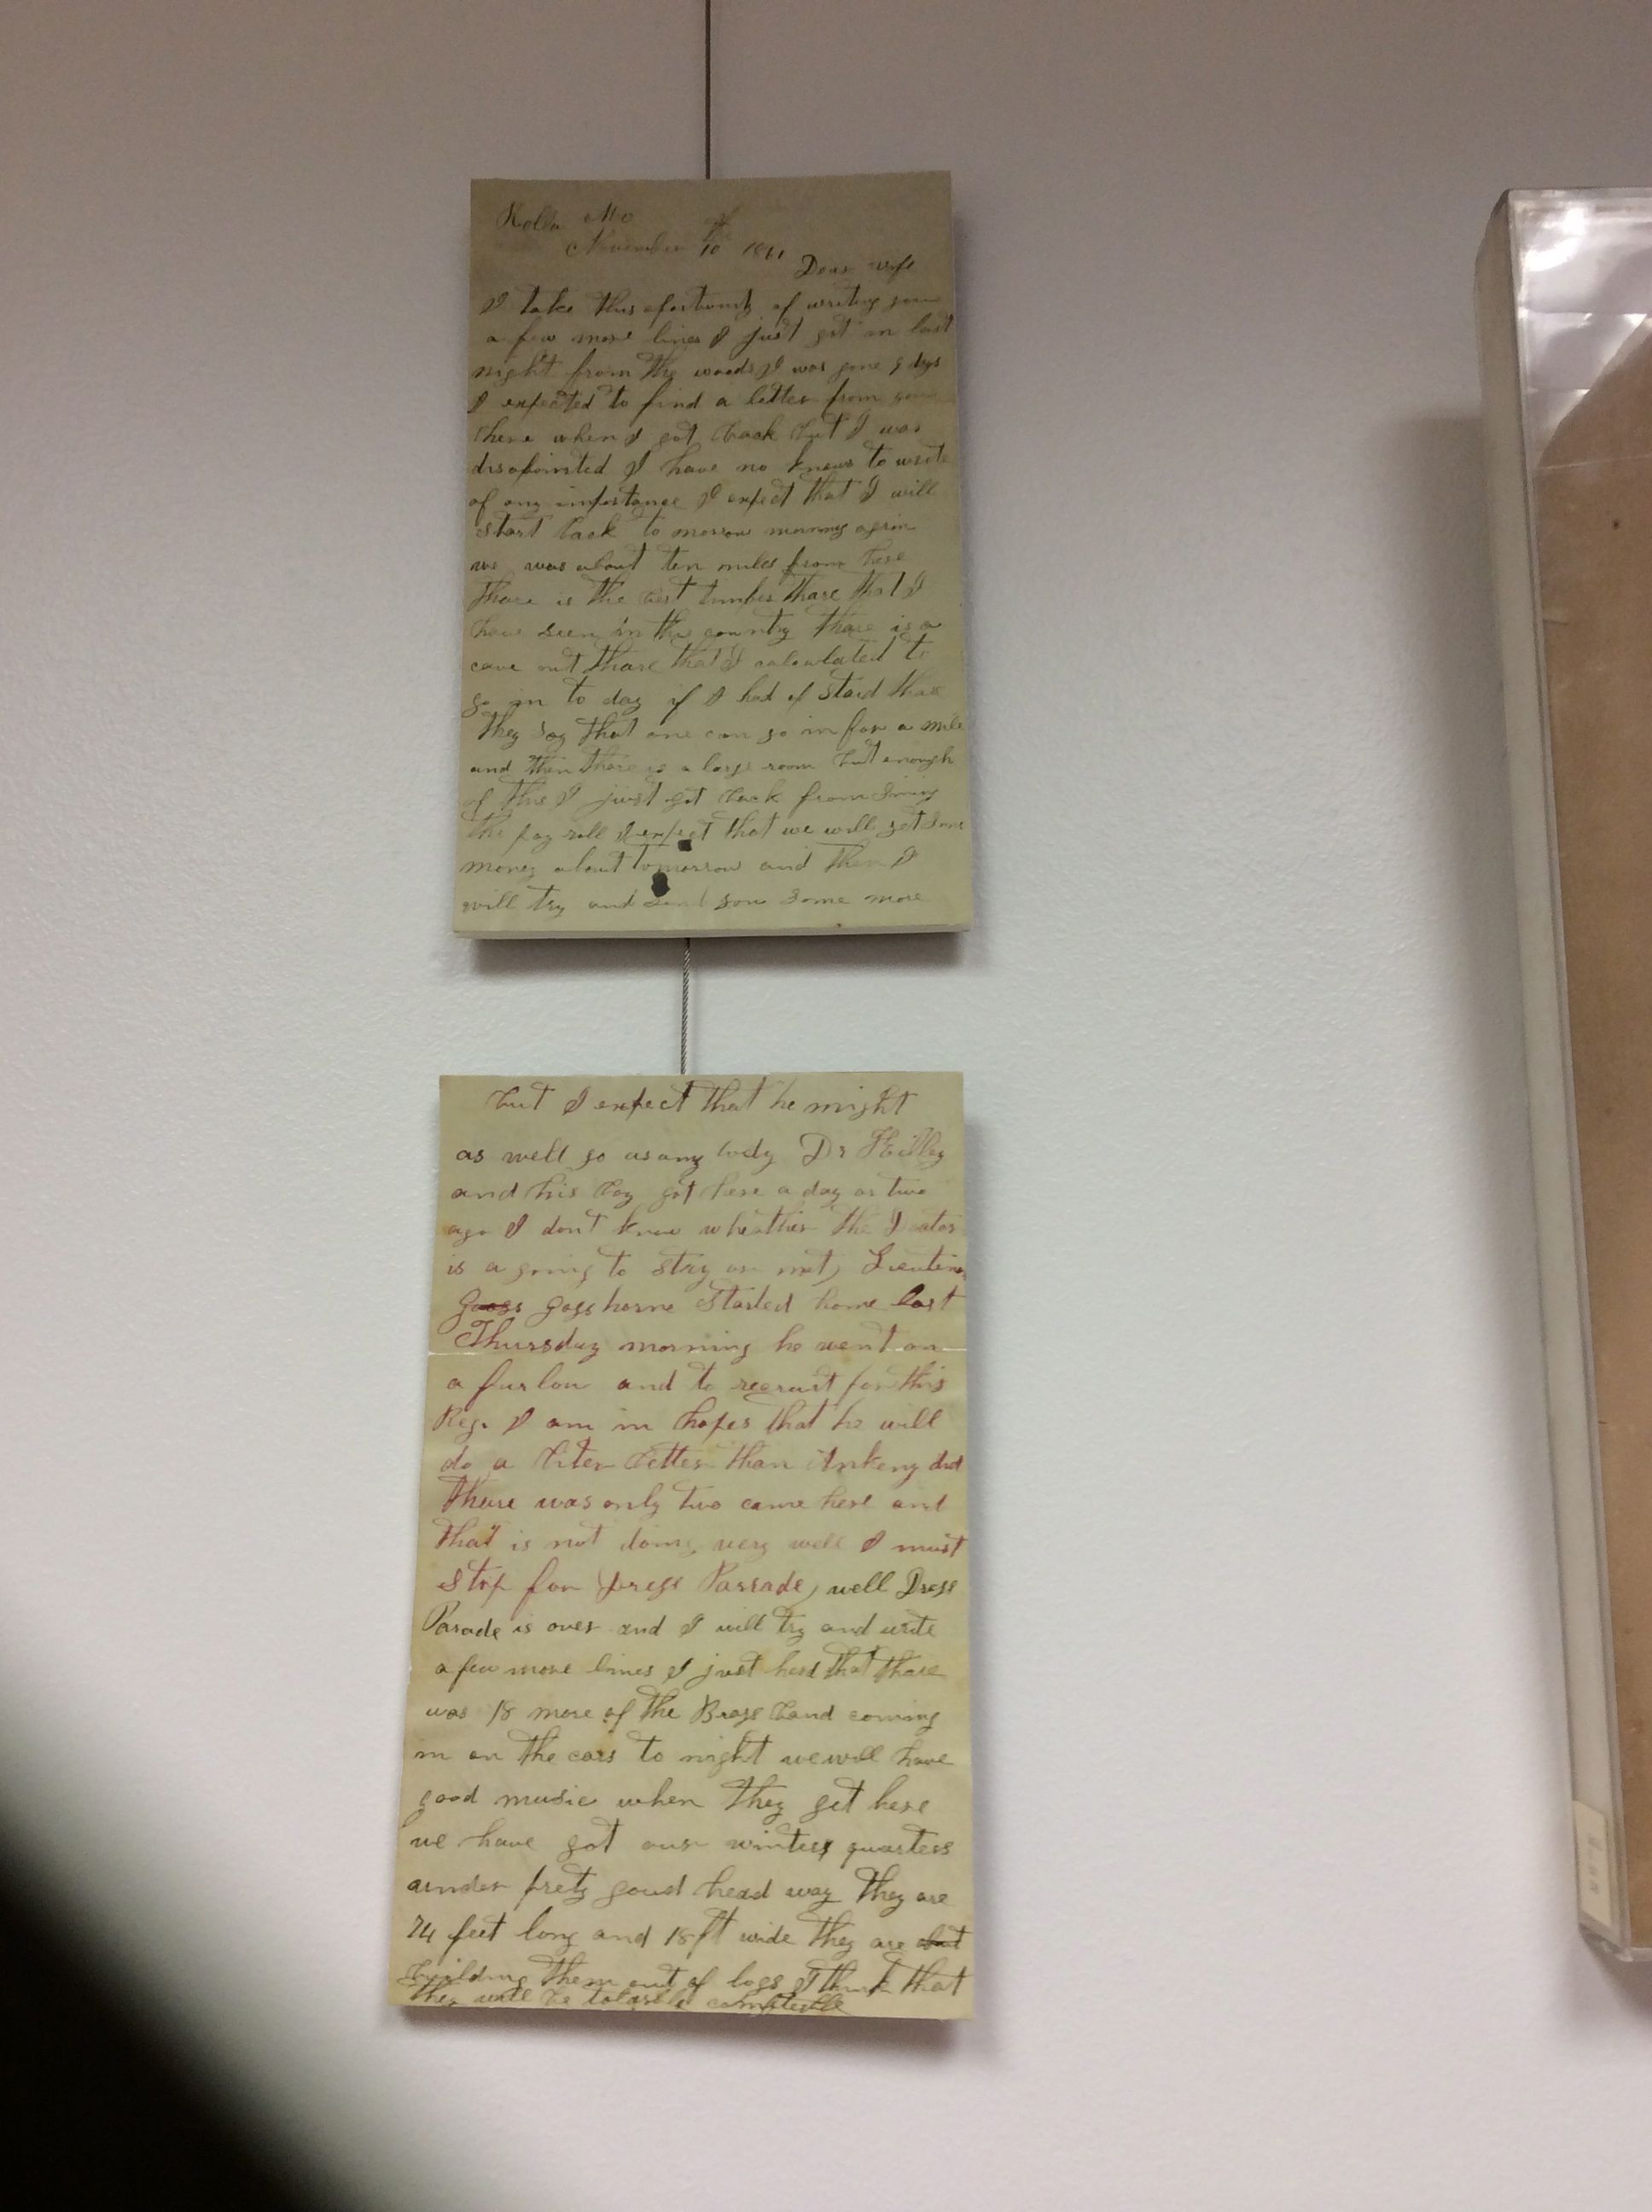 Rolla Mo
November 10th 1861
Dear wife
I take this opertunity of writing you
a few more lines I just got in last
night from the woods I was gone 9 days
I expected to find a letter from you
here when I got back but I was
disapointed I have no knews to write
of any importance I expect that I will
start back to morrow morning again
we was about ten miles from here
thare is the best timber thare that I
have seen in the country thare is a
cave out thare that I calculated to
go in to day if I had of staid thare
they say that one can go in for a mile
and then thare is a large room but enough
of this I just got back from
the pay roll I expect that we will get some
money about tomorrow and then I
will try and send you some more
but I expect that he might
as well go as any body Dr
and his boy got here a day or two
ago I don't know wheather the
is a going to stay or not,
Gosshorne started home last
Thursday morning he went on
a furlou and to recruit for this
Reg. I am in hopes that he will
do a liter better than Ankeny did
thare was only two came here and
that is not doing very well I must
stop for Dress Parrade, well Dress
Parade is over and I will try and write
a few more lines I just herd that thare
was 18 more of the Brass band coming
in on the cars to night we will have
good music when they get here
we have got our winters quarters
under prety goud head way they are
74 feet long and 18 ft wide they are
building them out of logs I think that
they will be